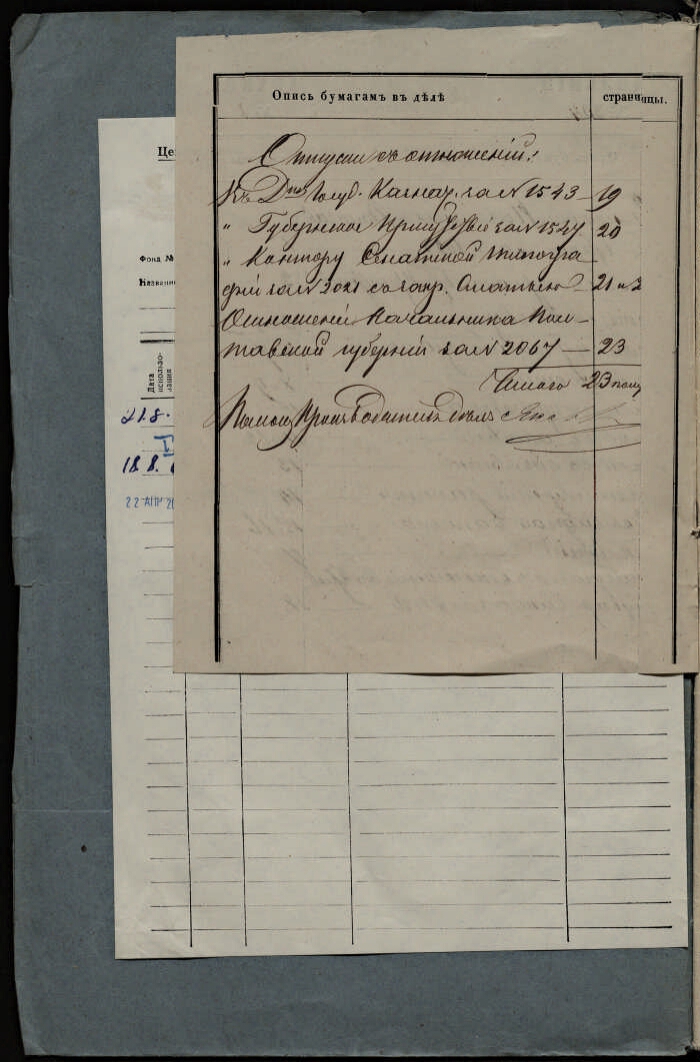 Опись бумагамъ въ дѣлѣ
страницы.
Отпуски съ отношеній:
Въ Госуд. Казнач. за № 1543 — 19
" Губернское за № 1547 20
" Контору Сенатской типогра
фіи за № 2021 со статьею — 21 и
Отношеніе Начальника Пол
тавской губерніи за № 2067 — 23
Итого 23
Помощ. Производителя дѣлъ
Це
Фонд №
Названи
Дата
использо-
вания
21.8.
18.8.
22 АПР